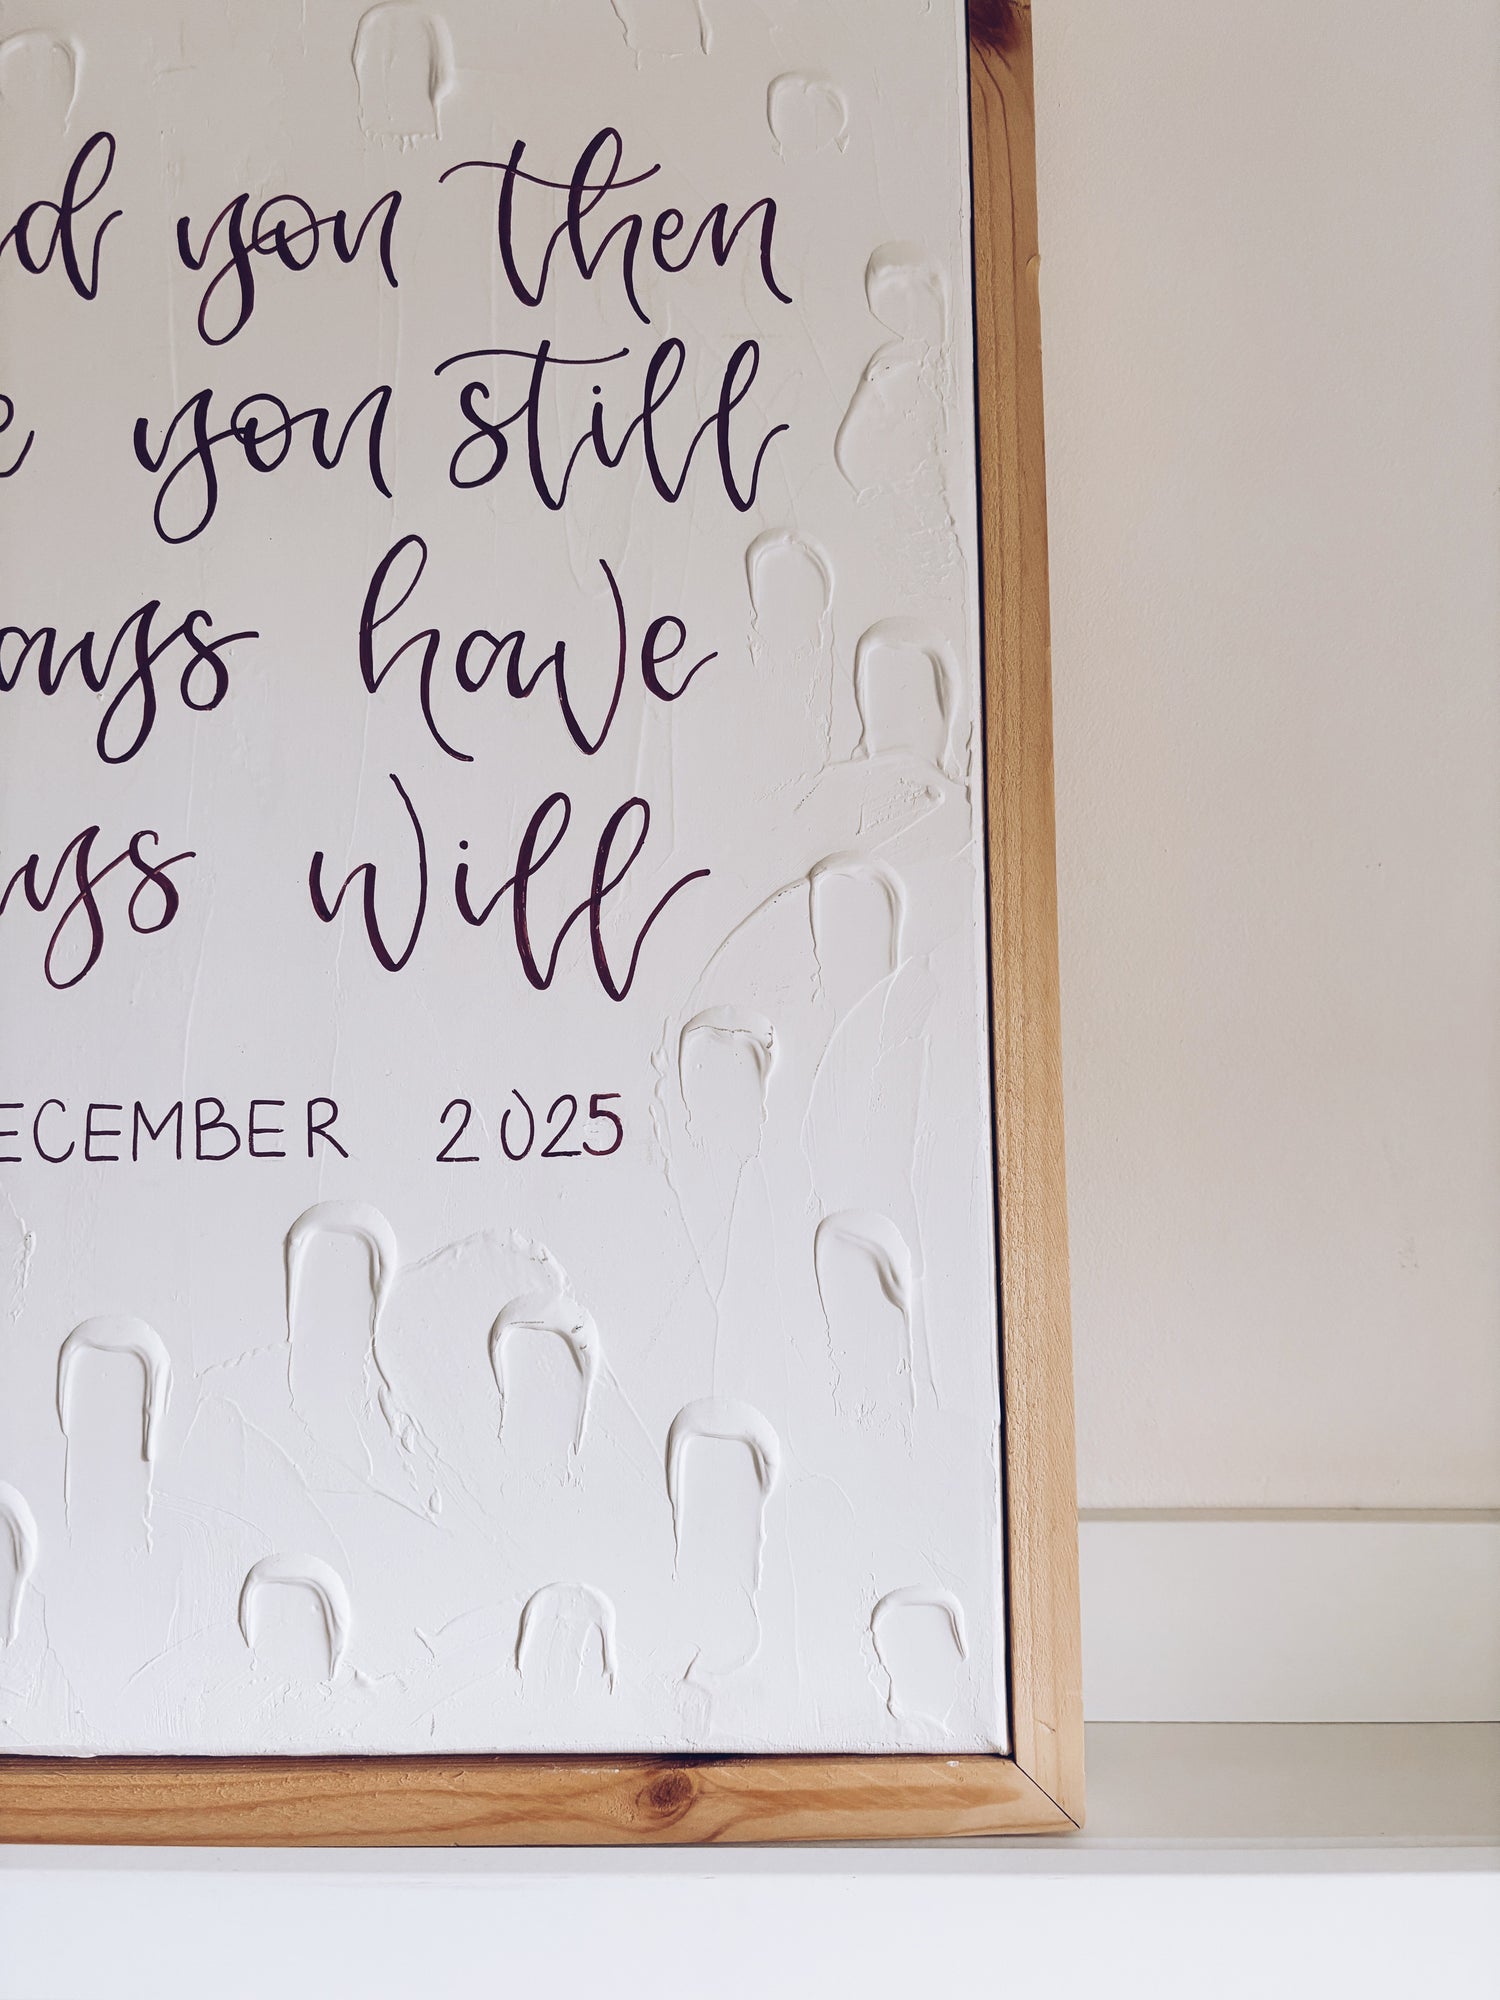 d you then
e you still
ays have
ys will
ECEMBER 2025